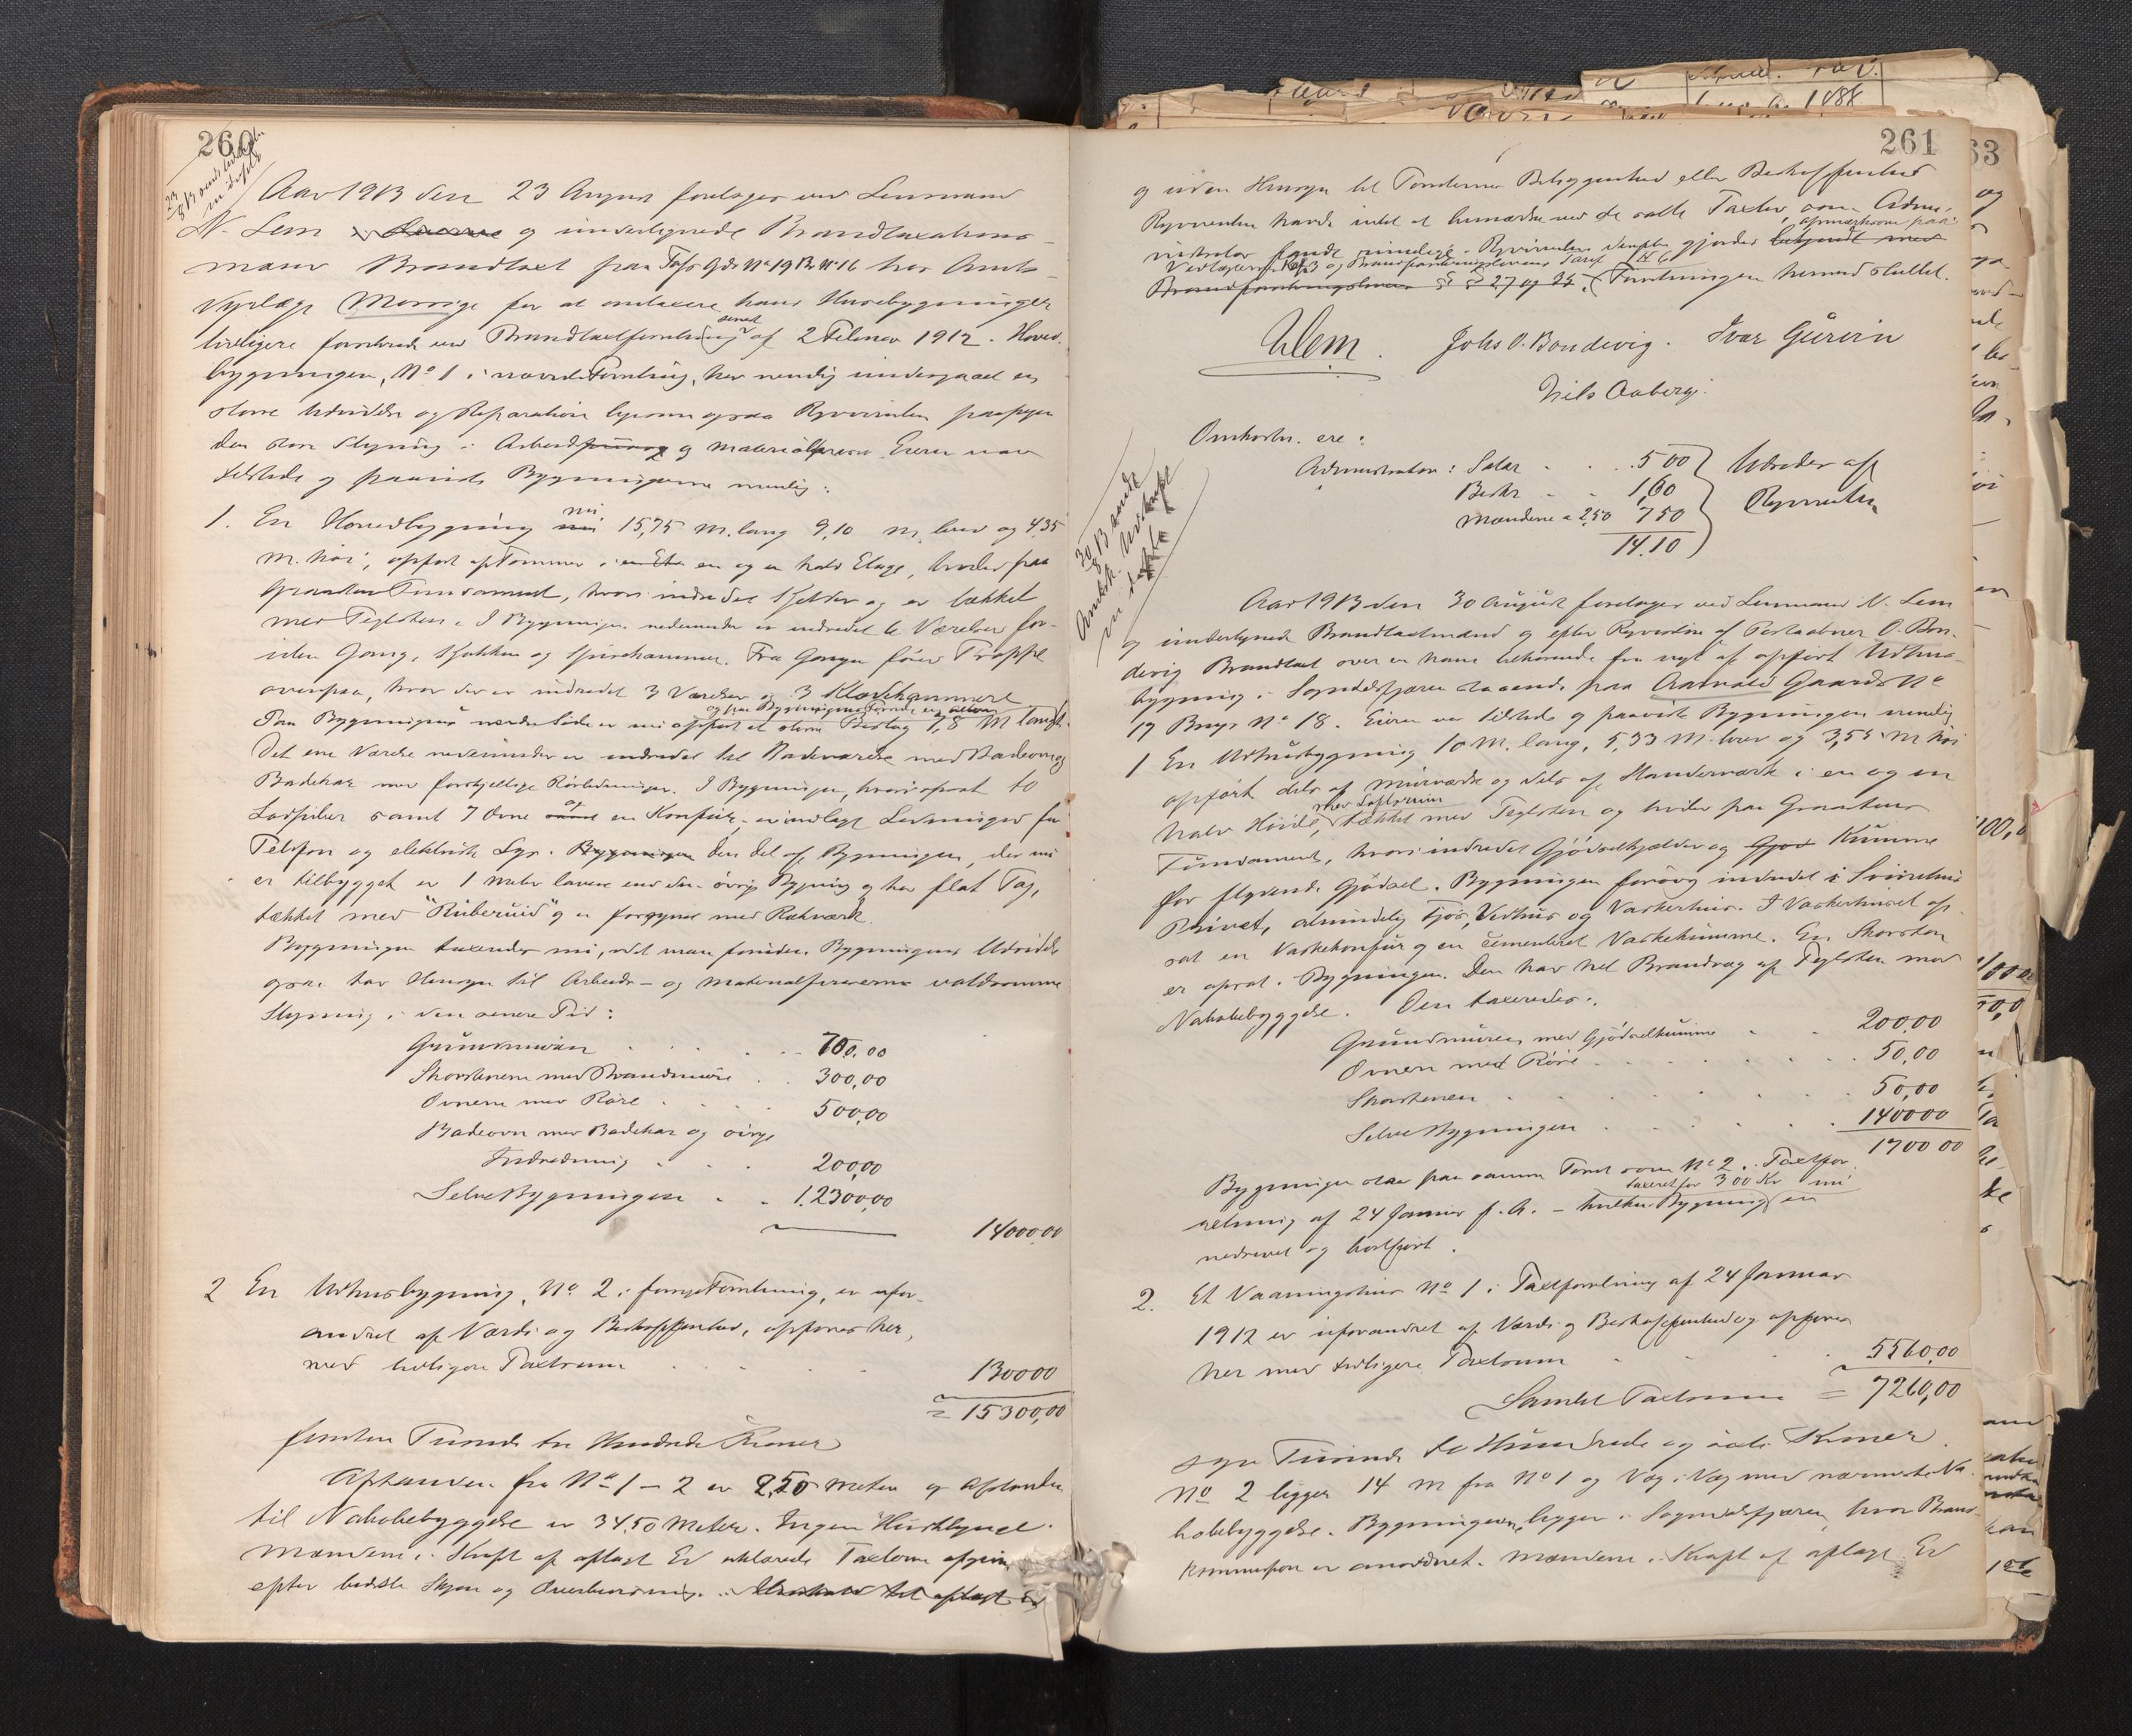 260
23/8 13 omb.
Aar 1913 den 23 August foretoges ved Lensmand
N. Lem og undertegnede Brandtaxations-
mænd Brandtaxt paa Gds No 19 Br No 16 hos Amts-
for at omtaxere hans Husebygninger
tidligere ved Brandtaxtforretning senest af 2 Februar 1912. Hoved-
bygningen, No 1 i nævnte Forretning, har nemlig undergaaet en
større Udvidelse og Reparation ligesom ogsaa Rekvirenten paapeger
den store Stigning i Arbeids og Materialpriser. Eieren var
tilstede og paaviste Bygningerne nemlig:
1. En Hovedbygning nu 15,75 M. lang 9,10 M. bred og 4,35
M. høi, opført af Tømmer i en og en halv Etage, hviler paa
Graastens Fundament, hvori indredet Kjelder og er tækket
med Teglsten. I Bygningen nedenunder er indredet 6 Værelser for-
uden Gang, Kjøkken og Spisekammer. Fra Gangen fører Trappe
ovenpaa, hvor der er indredet 3 Værelser og 3 Klædekammere
Paa Bygningens nordre Side er nu opført et større Bislag 7,8 M langt.
Det ene Værelse nedenunder er indredet til Badeværelse med Badeovn og
Badekar med forskjellige Rørledninger. I Bygningen, hvori opsat to
samt 7 Ovne og en Komfür, er indlagt Ledninger for
Telefon og elektrisk Lys. Den Del af Bygningen, der nu
er tilbygget er 1 Meter lavere end den øvrige Bygning og har flat Tag,
tækket med "Rüberuid" og er forsynet med Rækværk.
Bygningen taxeredes nu, idet man foruden Bygningens Udvidelse
ogsaa tar Hensyn til Arbeids- og Materialprisernes voldsomme
Stigning i den senere Tid:
Grundmuren 700,00
Skorstenene med Brandmure 300,00
Ovnene med Röre 500,00
Badeovn med Badekar og øvrige
Indredning 200,00
Selve Bygningen 12300,00
14000,00
2 En Udhusbygning, No 2 i forrige Forretning, er ufor-
andret af Værdi og Beskaffenhed, opføres her,
med tidligere Taxtsum 1300 00
= 15300,00
femten Tusinde tre Hundrede Kroner
Afstanden fra No 1 – 2 er 2,50 Meter og Afstanden
til Nabobebyggelse er 34,50 Meter. Ingen
Mændene i Kraft af aflagt Ed erklærede Taxterne afgivne
efter bedste Skjøn og Overbevisning.
261
og uden Hensyn til Tomternes Beliggenhed eller Beskaffenhed
Rekvirenten havde intet at bemærke ved de satte Taxter, som Admi-
nistrator fandt rimelige. Rekvirenten gjordes opmærksom paa
Forretningen hermed sluttet.
NLem. Johs O. Bondevig. Ivar Güren
Nils Aaberg.
Omkostn. ere:
Administrator: Salær 5 00
Beskr 1,60
Mændene a 2,50 7 50
14.10
Udredes af
Rekvirenten
30/8 13 sendt
Aar 1913 den 30 August foretoges ved Lensmand N. Lem
og undertegnede Brandtaxtmænd og efter Rekvisition af Postaabner O. Bon-
devig Brandtaxt over en ham tilhørende fra nyt af opført Udhus-
bygning i Sogndalsfjæren staaende paa Gaards No
17 Brugs No 18. Eieren var tilstede og paaviste Bygningen nemlig
1 En Udhusbygning 10 M. lang, 5,33 M. bred og 3,55 M høi
opført dels af Murværk og dels af Standerværk i en og en
halv Høide, med Loftsrum tækket med Teglsten og hviler paa Graastens
Fundament, hvori indredet Gjødselkjælder og Kumme
for flydende Gjødsel. Bygningen forøvrig indredet i Svinehus
Privet, almindelig Fjøs, Vedhus og Vaskerhus. I Vaskerhuset op-
sat en Vaskekomfur og en cementeret Vaskekumme. En Skorsten
er opsat i Bygningen. Den har hel Brandvæg af Teglsten mod
Nabobebyggelse. Den taxeredes:
Grundmuren med Gjödselkumme 200,00
Ovnen med Röre 50,00
Skorstenen 50,00
Selve Bygningen 1400 00
1700 00
Bygningen staar paa samme Tomt som No 2 i Taxtfor-
retning af 24 Januar f. A. – hvilken Bygning taxeret for 300 Kr nu er
nedrevet og bortfjört.
2. Et Vaaningshus No 1 i Taxtforretning af 24 Januar
1912 er uforandret af Værdi og Beskaffenhed og opføres
her med tidligere Taxtsum 5560,00
Samlet Taxtsum = 7260,00
syv Tusinde to Hundrede og seksti Kroner.
No 2 ligger 14 M fra No 1 og Væg i Væg med nærmeste Na-
bobebyggelse. Bygningerne ligger i Sogndalsfjæren, hvor Brand-
kommission er anordnet. Mændene i Kraft af aflagt Ed